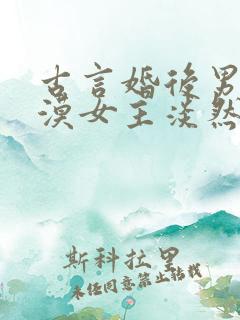 古言婚后男
漠女主淡然
斯科拉里
未经同意禁止转载